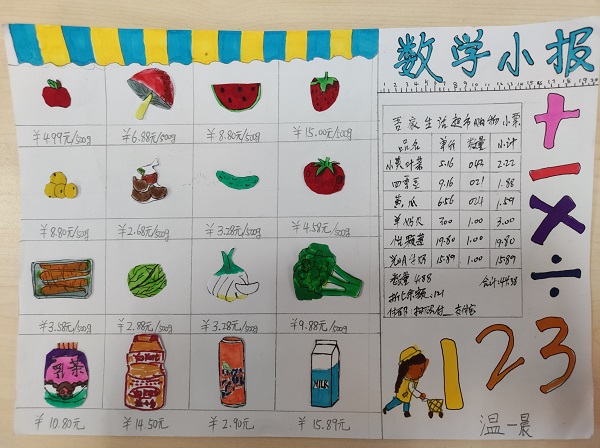 数学小报
¥4.99元/500g ¥6.88元/500g ¥8.80元/500g ¥15.00元/200g
¥8.80元/500g ¥2.68元/500g ¥3.28元/500g ¥4.58元/500g
¥3.58元/500g ¥2.88元/500g ¥3.28元/500g ¥9.88元/500g
MILK
¥10.80元 ¥14.50元 ¥2.90元 ¥15.89元
吾家生活超市购物小票
品名 单价 数量 小计
小黄叶菜 5.16 0.42 2.22
四季豆 9.16 0.21 1.88
黄瓜 6.56 0.24 1.59
单 3.00 1.00 3.00
19.80 1.00 19.80
15.89 1.00 15.89
数量 4.88 合计:44.38
+
-
×
÷
123
温一晨